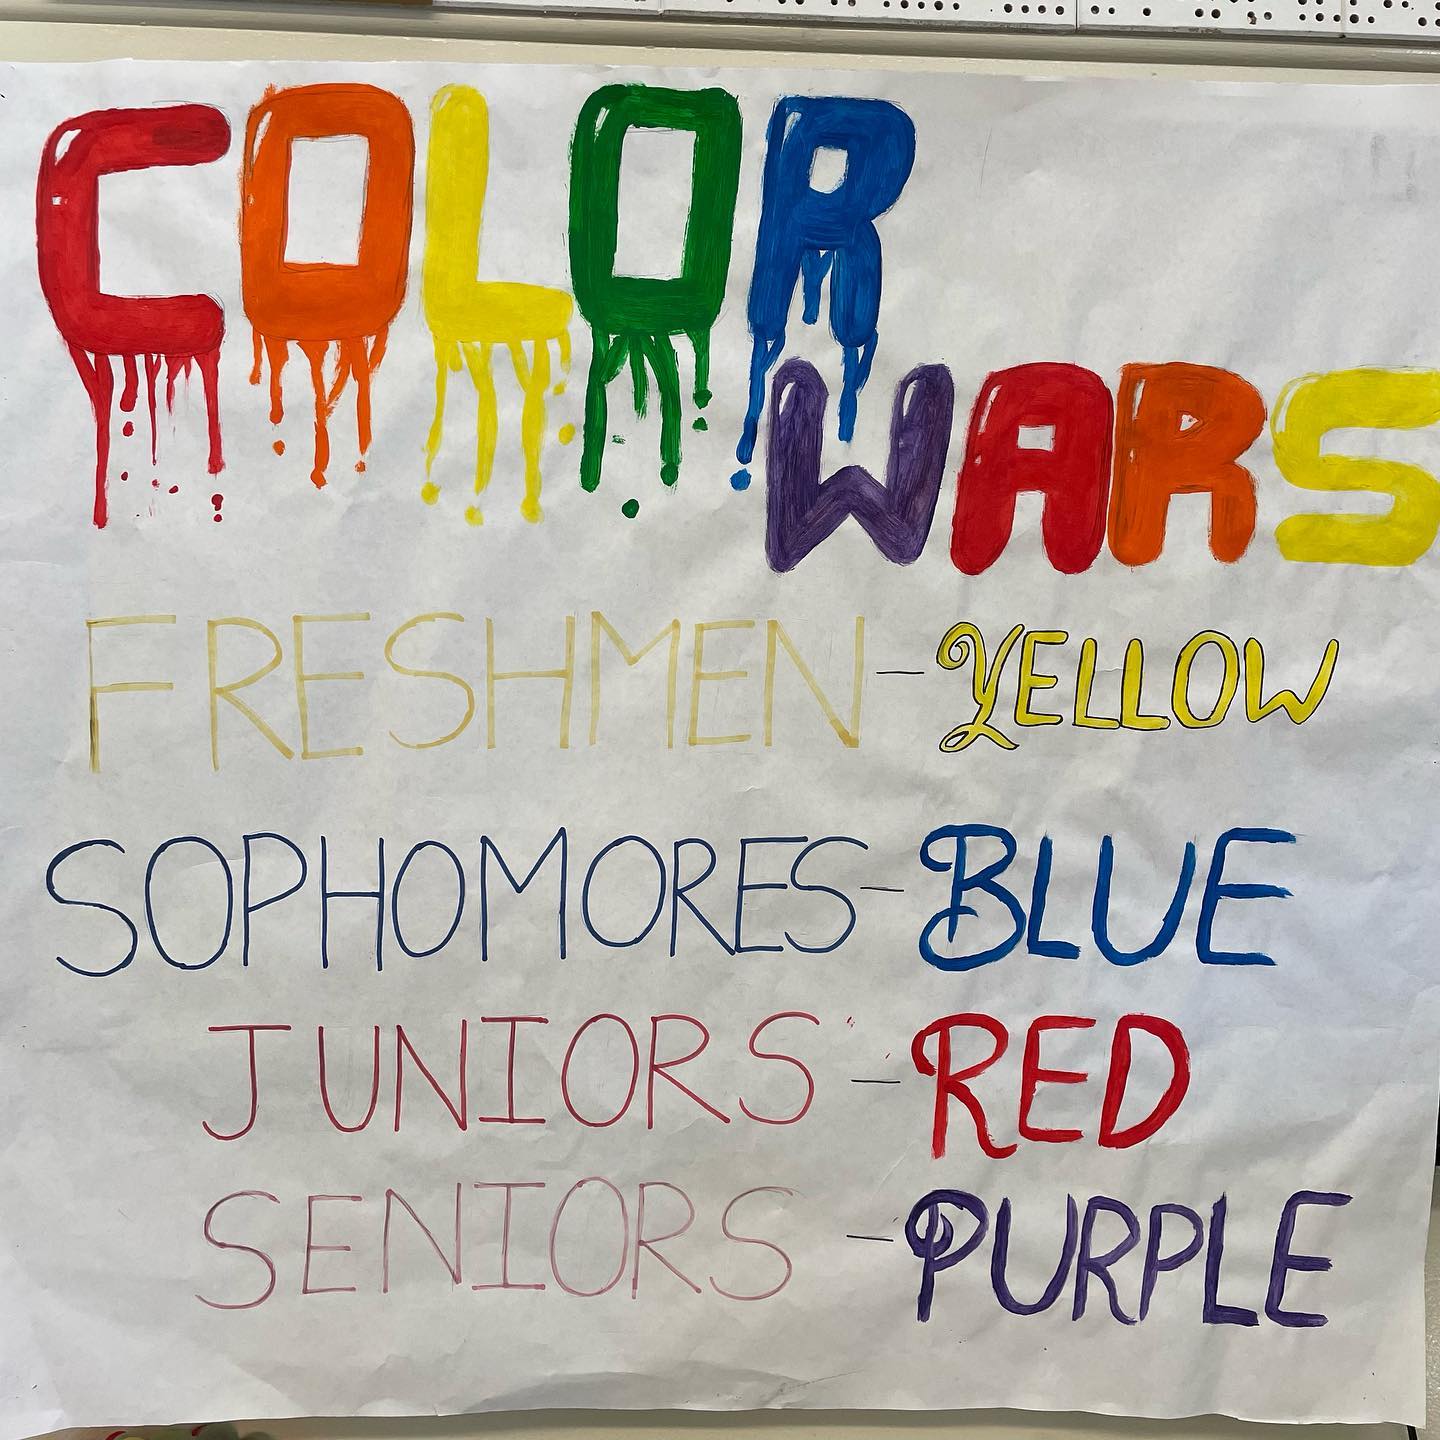 COLOR
WARS
FRESHMEN - YELLOW
SOPHOMORES - BLUE
JUNIORS - RED
SENIORS - PURPLE